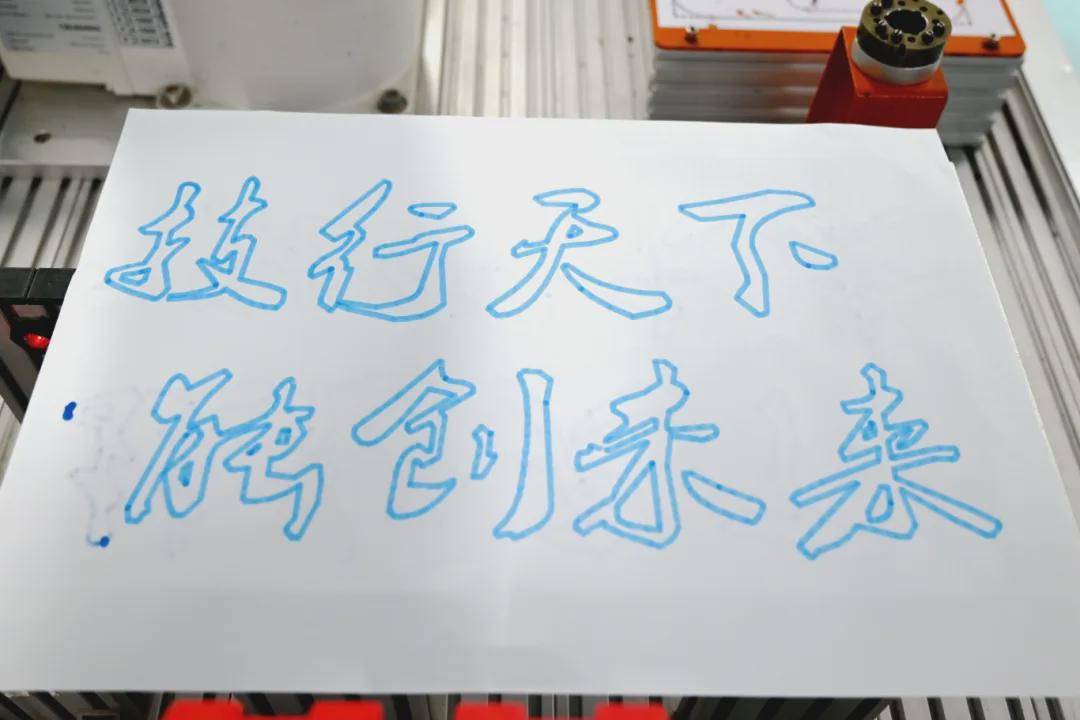 技行天下
能创未来